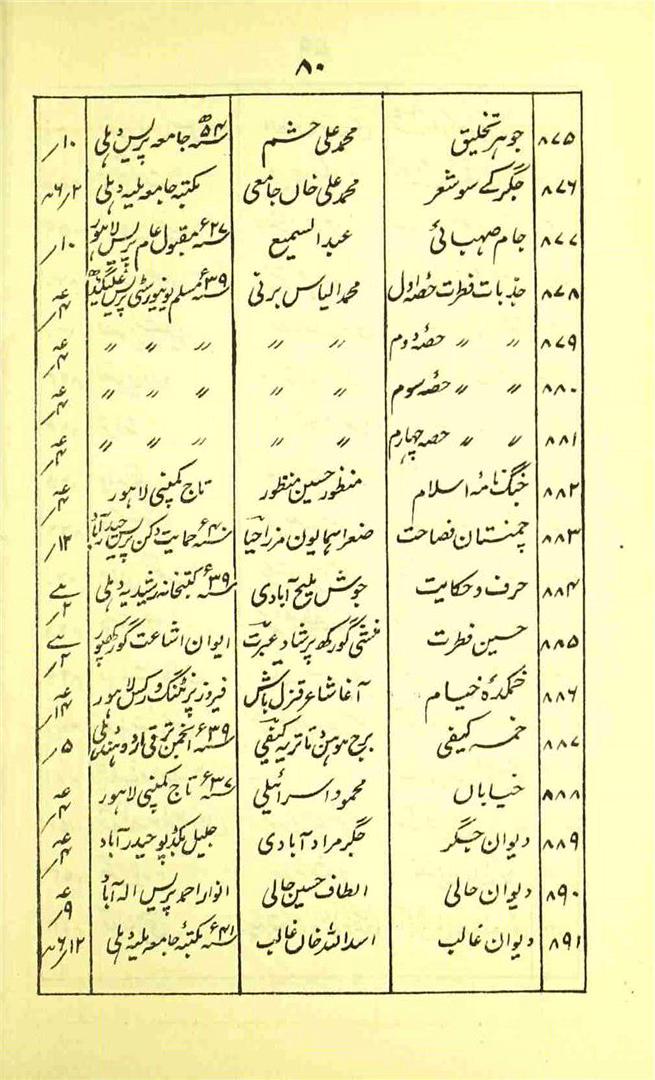 ۸۰
۸۷۵ جوہر تخلیق محمد علی حشم ۵۴ء جامعہ پریس دہلی ۱۰؍
۸۷۶ جگر کے سو شعر محمد علی خاں جامعی مکتبہ جامعہ ملیہ دہلی ۲؍۶
۸۷۷ جام صہبائی عبد السمیع ۶۲۷ مقبول عام پریس لاہور ۱۰؍
۸۷۸ جذبات فطرت حصہ اول محمد الیاس برنی ۶۳۹ مسلم یونیورسٹی پریس علیگڈھ عہ ۴؍
۸۷۹ 〃 〃 حصہ دوم 〃 〃 〃 〃 〃 عہ ۴؍
۸۸۰ 〃 〃 حصہ سوم 〃 〃 〃 〃 〃 عہ ۴؍
۸۸۱ 〃 〃 حصہ چہارم 〃 〃 〃 〃 〃 عہ ۴؍
۸۸۲ جنگ نامۂ اسلام منظور حسین منظور تاج کمپنی لاہور عہ ۴؍
۸۸۳ چمنستان فصاحت صغرا ہمایون مرزا حیا ۶۴۰ حمایت دکن پریس حیدرآباد ۱۲؍
۸۸۴ حرف و حکایت جوش ملیح آبادی ۶۳۹ کتبخانہ رشیدیہ دہلی ۲؍
۸۸۵ حسین فطرت منشی گورکھ پرشاد عبرت ایوان اشاعت گورکھپور ۲؍
۸۸۶ خمکدۂ خیام آغا شاعر قزلباش فیروز پرنٹنگ ورکس لاہور عہ ۱۴؍
۸۸۷ خمسہ کیفی برج موہن دتاتریہ کیفی ۶۳۹ انجمن ترقی اردو ہند دہلی ۵؍
۸۸۸ خیاباں محمود اسرائیلی ۶۳۷ تاج کمپنی لاہور عہ ۴؍
۸۸۹ دیوان جگر جگر مراد آبادی جلیل بکڈپو حیدرآباد عہ ۴؍
۸۹۰ دیوان حالی الطاف حسین حالی انوار احمد پریس الہ آباد عہ ۹؍
۸۹۱ دیوان غالب اسد اللہ خاں غالب ۶۴۱ مکتبہ جامعہ ملیہ دہلی ۱۲؍۶